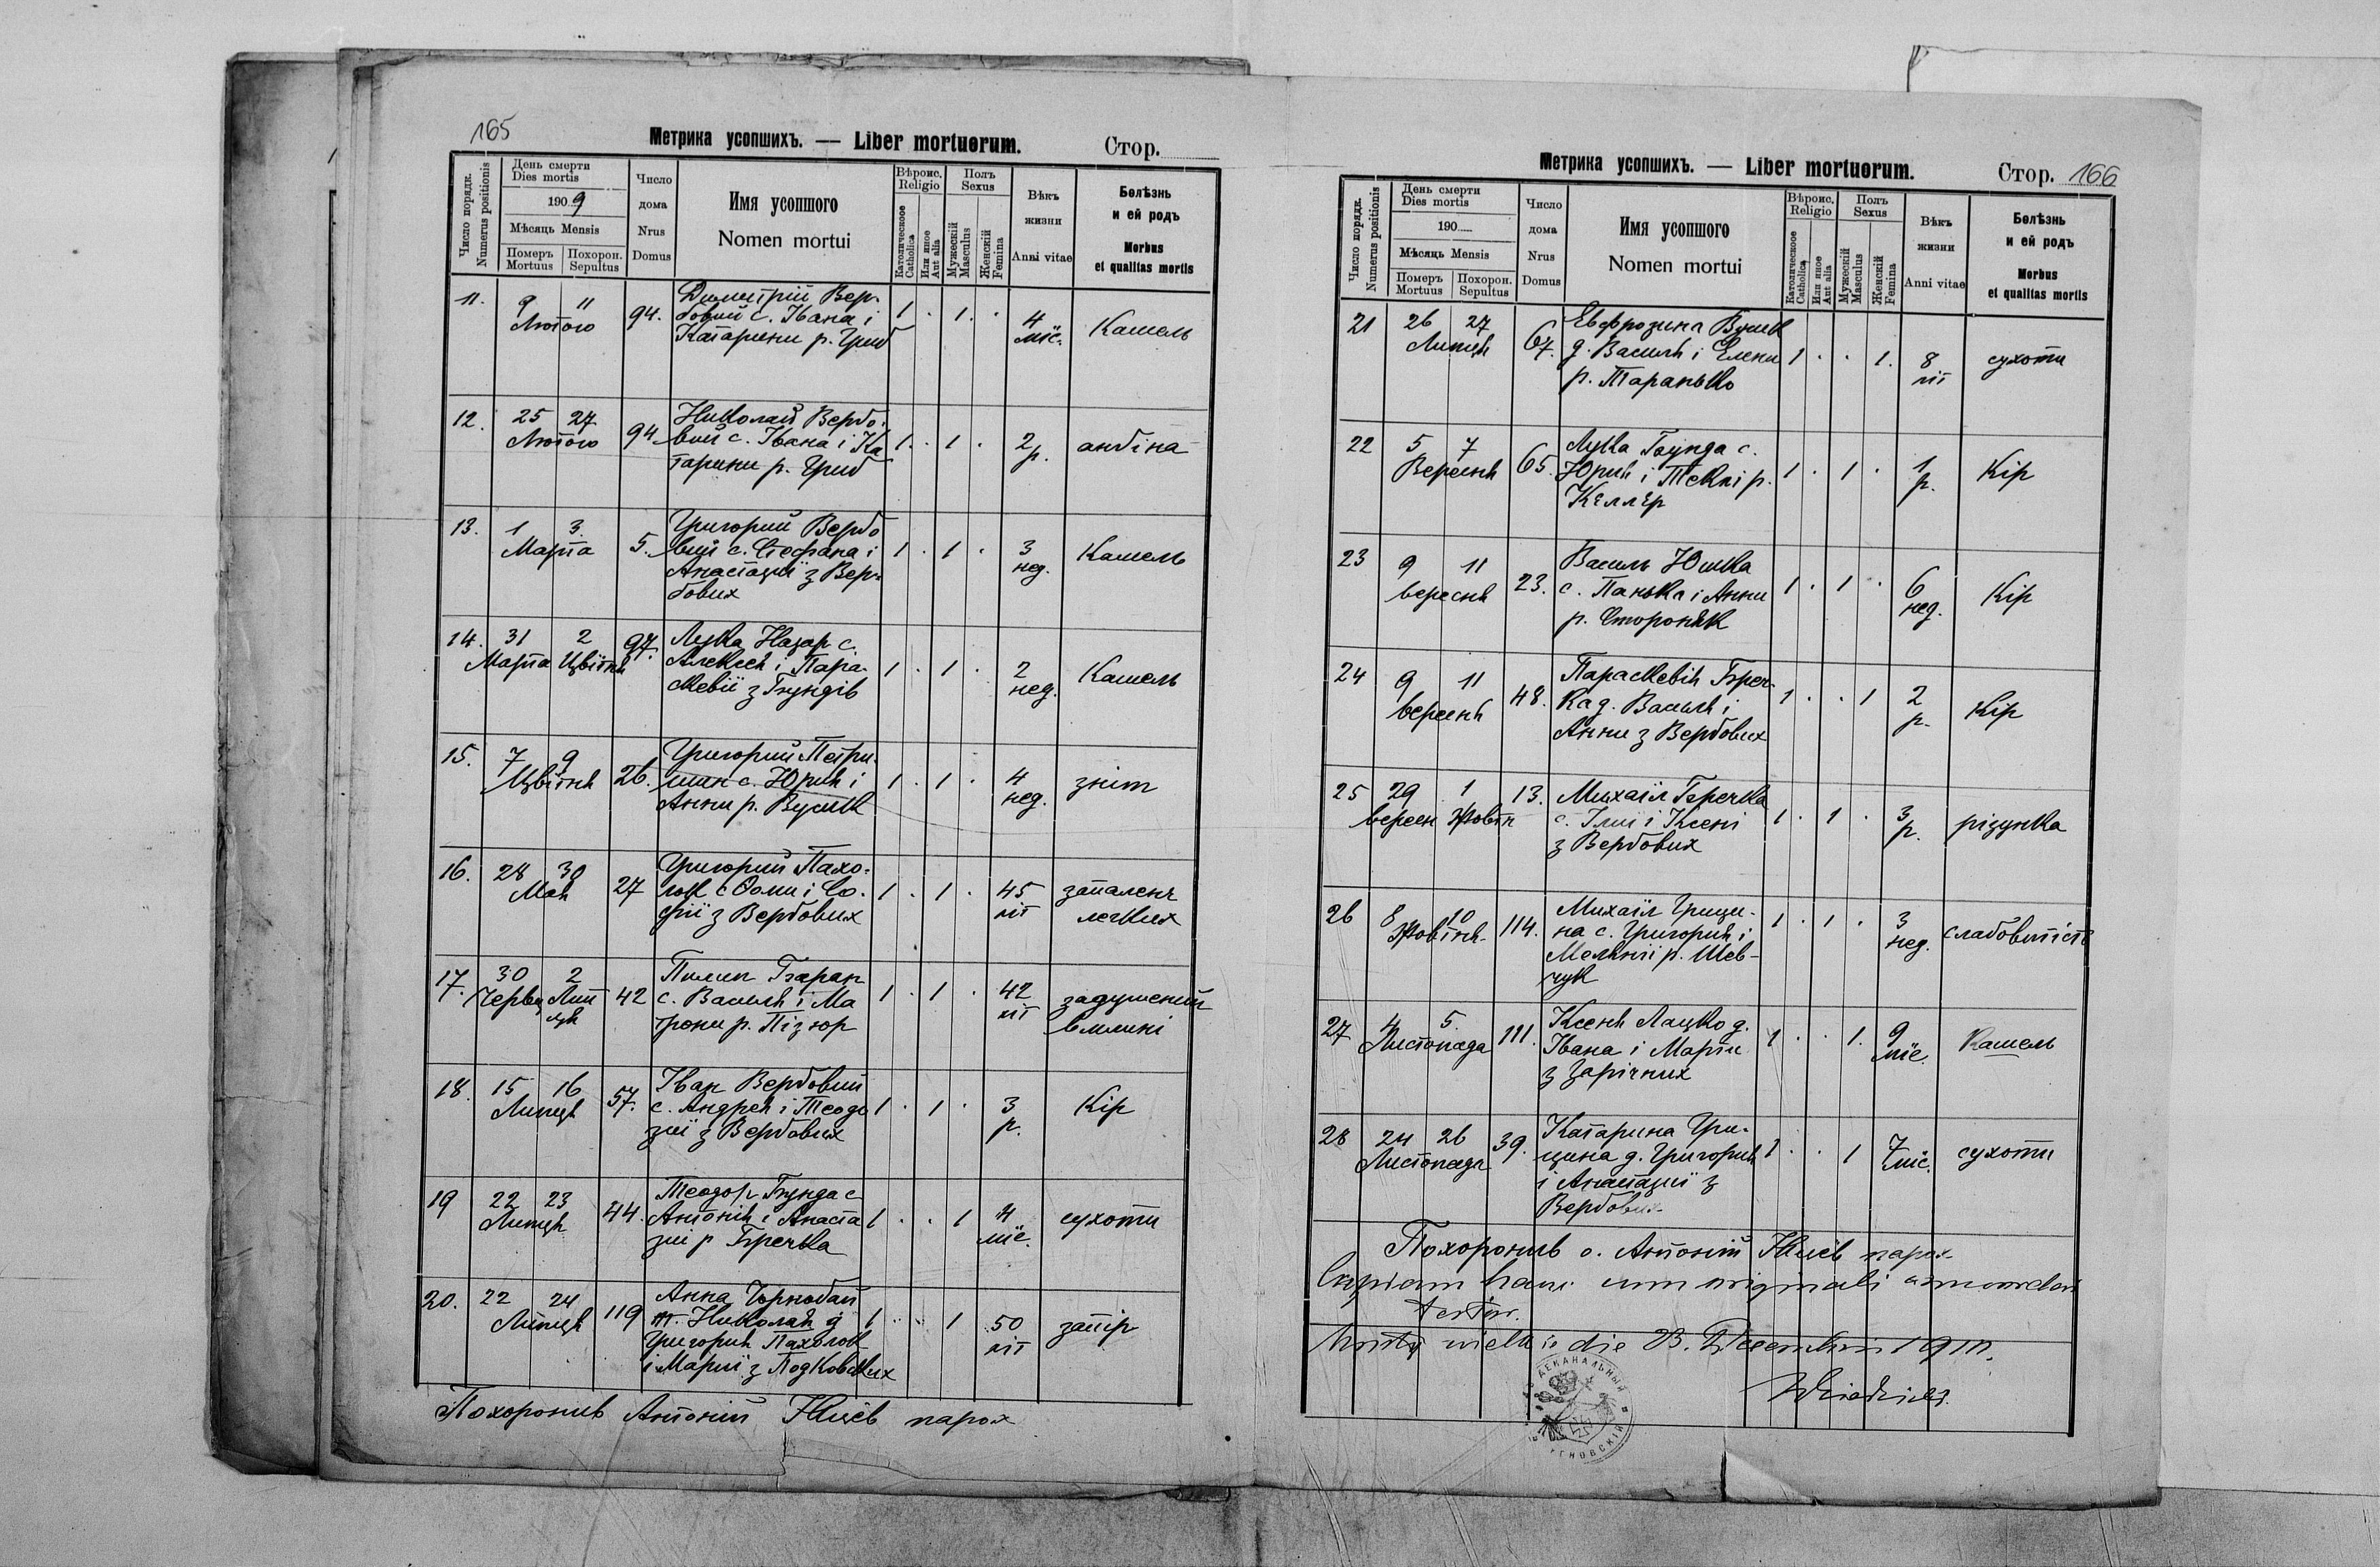 165
Метрика усопшихъ. — Liber mortuorum. Стор.
Число порядк. Numerus positionis
День смерти Dies mortis
1909
Мѣсяць Mensis
Померъ Mortuus
Похорон. Sepultus
Число дома Nrus Domus
Имя усопшого Nomen mortui
Вѣроис. Religio
Католическоое Catholica
Или иное Aut alia
Полъ Sexus
Мужескій Masculus
Женскій Femina
Вѣкъ жизни Anni vitae
Болѣзнь и ей родъ Morbus et qualitas mortis
11. 9 11 Лютого 94. Димитрій Вер-
бовий с. Івана і
Катарини р. Гриб
1 . 1. . 4 міс. Кашель
12. 25 27 Лютого 94 Николай Вербо-
вий с. Івана і Ка
тарини р. Гриб
1. . 1 . 2 р. анбіна
13. 1 3. Марта 5. Григорий Вербо
вий с. Стефана і
Анастазиї з Вер-
бових
1 . 1 . 3 нед. Кашель
14. 31 2 Марта Цвітня 97. Лука Назар с.
Алексея і Пара-
скевії з Гзундів
1 . 1 . 2 нед. Кашель
15. 7 9 Цвітня 26. Григорий Петри-
шин с. Юрия і
Анни р. Вусик
1 . 1 . 4 нед. зніт
16. 28 30 Мая 27 Григорий Пахо-
лок с Фоми і Со-
фії з Вербових
1 . 1 . 45 літ запаленє
легких
17. 30 2 Червц Лип
ця 42 Пилип
с. Василя і Ма
трони р. Пізюр
1 . 1 . 42 літ задушений
в млині
18. 15 16 Липця 57. Іван Вербовий
с. Андрея і Теодо
зиї з Вербових
1 . 1 . 3 р. Кір
19 22 23 Липця 44. Теодор Гзунда с
Антонія і Анаста
зиї р
1 . . 1 4 міс. сухоти
20. 22 24 Липця 119 Анна Чорнобай
ж. Николая д
Григория Пахолок
і Мариї з Подковских
1 . . 1 50 літ запір
Похоронив Антоній парох
Метрика усопшихъ. — Liber mortuorum. Стор. 166
Число порядк. Numerus positionis
День смерти Dies mortis
190
Мѣсяць Mensis
Померъ Mortuus
Похорон. Sepultus
Число дома Nrus Domus
Имя усопшого Nomen mortui
Вѣроис. Religio
Католическоое Catholica
Или иное Aut alia
Полъ Sexus
Мужескій Masculus
Женскій Femina
Вѣкъ жизни Anni vitae
Болѣзнь и ей родъ Morbus et qualitas mortis
21 26 27 Липця 67. Евфрозина Вусик
д. Василя і Елени
р. Таранько
1 . . 1. 8 літ сухоти
22 5 7 Вересня 65. Лука Гзунда с.
Юрия і Теклі р.
Келлер
1 . 1 . 1 р. Кір
23 9 11 вересня 23. Василь Юшка
с. Панька і Анни
р. Стороняк
1 . 1 . 6 нед. Кір
24 9 11 вересня 48. Параскевія
ка д. Василя і
Анни з Вербових
1 . . 1 2 р. Кір
25 29 1 вересн Жовтн 13. Михаіл
с. Ілиї і Ксені
з Вербових
1 . 1 . 3 р. різунка
26 8 10 Жовтня 114. Михаіл Грици-
на с. Григория і
Меланії р. Шев-
чук
1 . 1 . 3 нед. слабовитість
27 4 5. Листопада 111. Ксеня Лацко д.
Івана і Мариї
з Зарічних
1 . . 1. 9 міс. Кашель
28 24 26 Листопада 39. Катарина Гри-
цина д. Григория
і Анастазиї з
Вербових
1 . . 1 7 міс. сухоти
Похоронив о. Антоній парох
Copiam hanc cum originali concordare
testor.
die 23. Decembris 1910.
ДЕКАНАЛЬНЫЙ